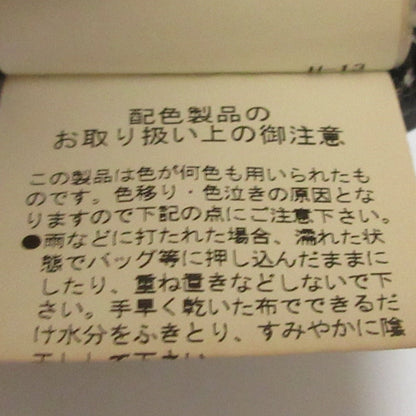 配色製品の
お取り扱い上の御注意
この製品は色が何色も用いられたも
のです。色移り・色泣きの原因とな
りますので下記の点にご注意下さい。
●雨などに打たれた場合、濡れた状
態でバッグ等に押し込んだままに
したり、重ね置きなどしないで下
さい。手早く乾いた布でできるだ
け水分をふきとり、すみやかに陰
干しして下さい